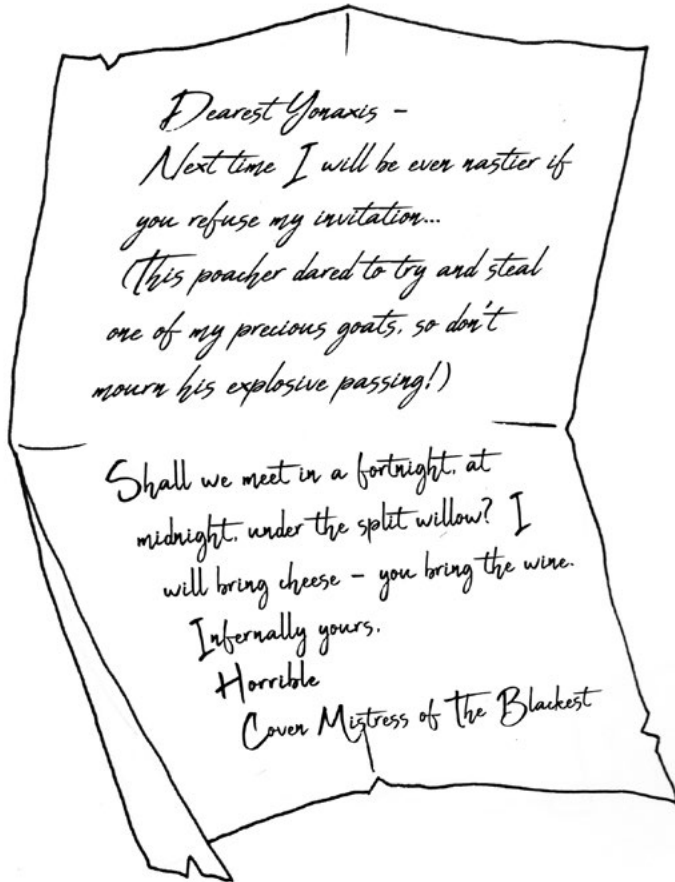 Dearest Yonaxis –
Next time I will be even nastier if
you refuse my invitation...
(This poacher dared to try and steal
one of my precious goats, so don't
mourn his explosive passing!)
Shall we meet in a fortnight, at
midnight, under the split willow? I
will bring cheese – you bring the wine.
Infernally yours,
Horrible
Coven Mistress of the Blackest